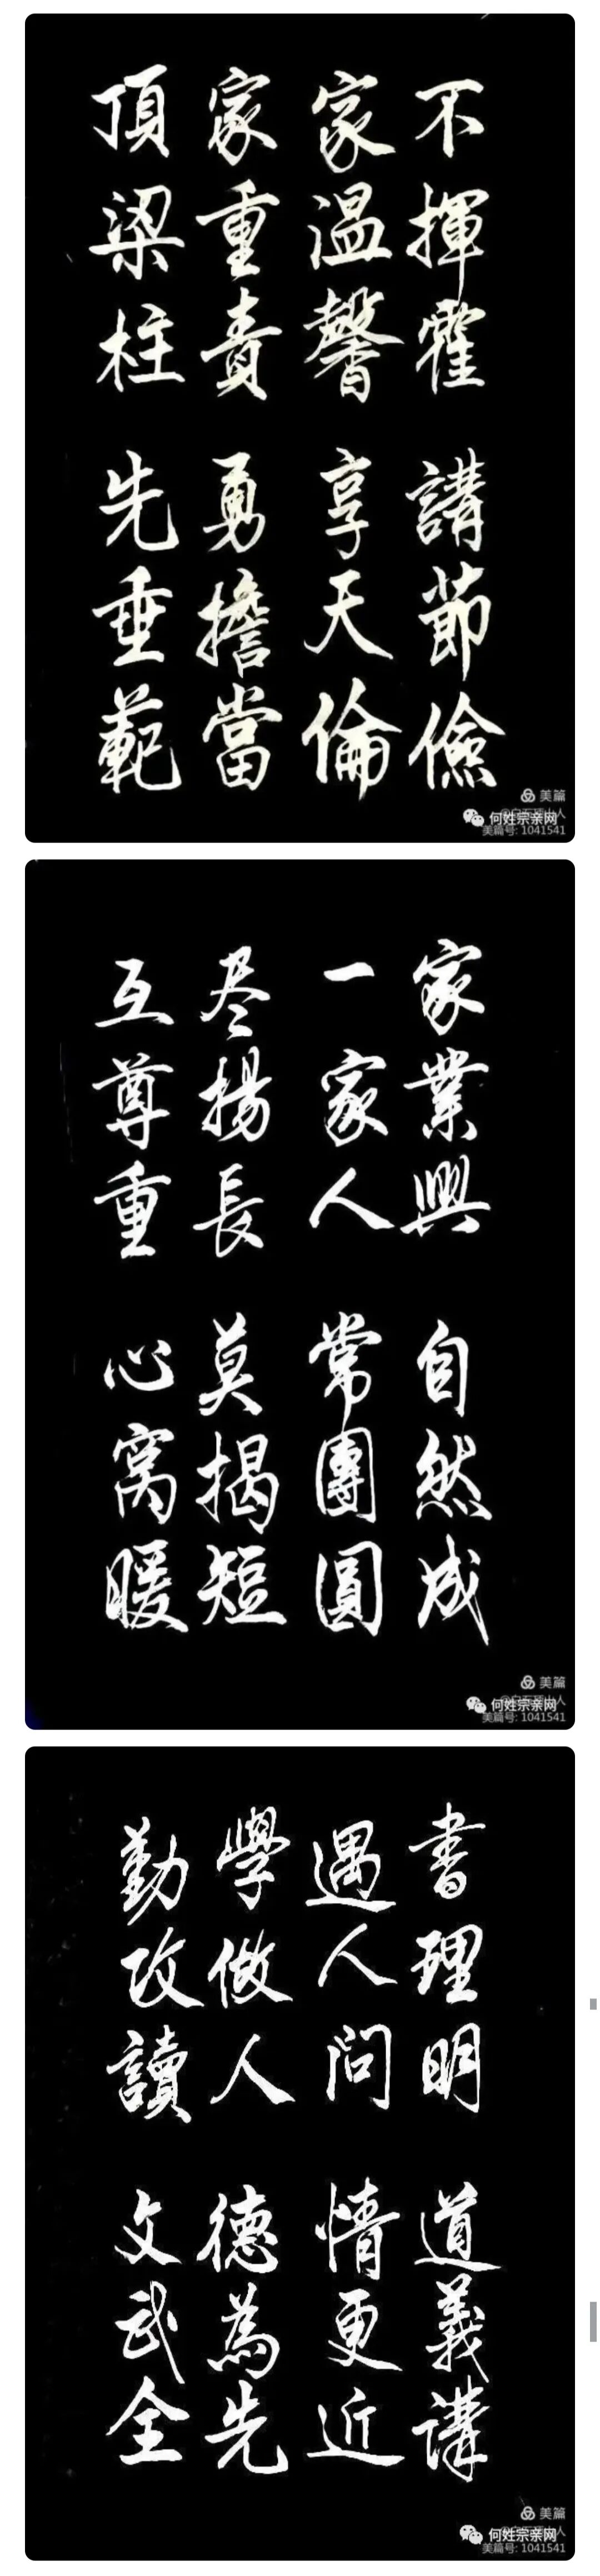 不揮霍 講節儉
家温馨 享天倫
家重責 勇擔當
頂梁柱 先垂範
美篇
何姓宗亲网
美篇号: 1041541
家業興 自然成
一家人 常團圓
尽揚長 莫揭短
互尊重 心窝暖
美篇
何姓宗亲网
美篇号: 1041541
書理明 道義講
遇人问 情更近
學做人 德為先
勤攻讀 文武全
美篇
何姓宗亲网
美篇号: 1041541